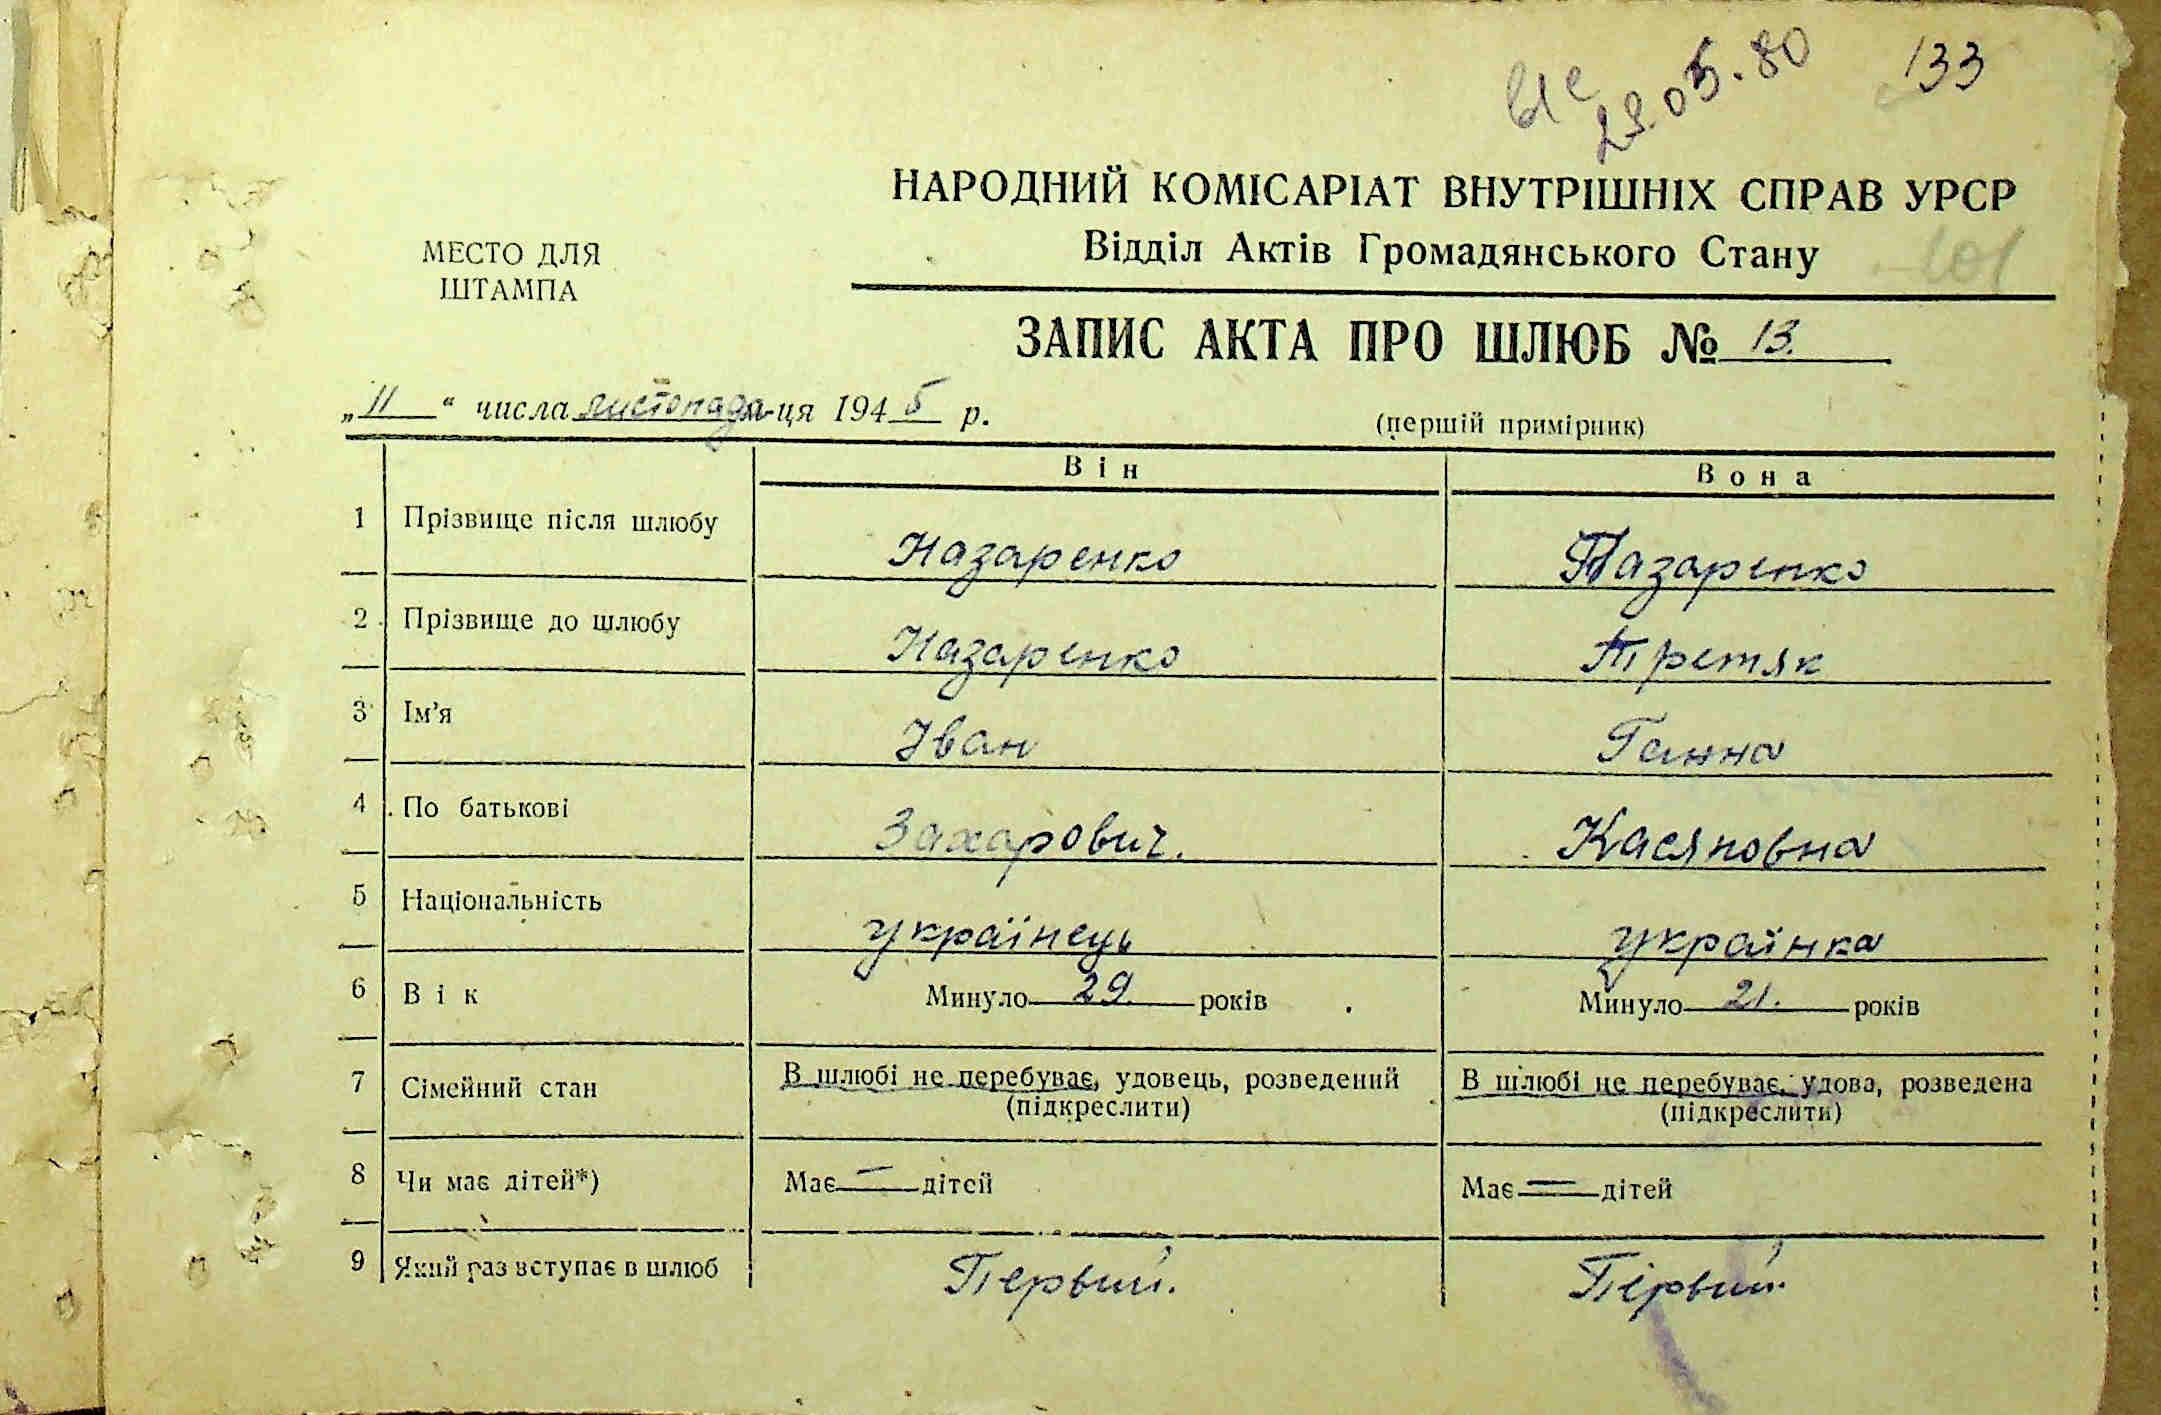 29.05.80
133
НАРОДНИЙ КОМІСАРІАТ ВНУТРІШНІХ СПРАВ УРСР
МЕСТО ДЛЯ
ШТАМПА
Відділ Актів Громадянського Стану
101
ЗАПИС АКТА ПРО ШЛЮБ № 13.
„11“ числа листопада м-ця 1945 р.
(першій примірник)
Він
Вона
1 Прізвище після шлюбу Назаренко Назаренко
2 Прізвище до шлюбу Назаренко Третяк
3 Ім'я Іван Ганна
4 По батькові Захарович. Касяновна
5 Національність українець українка
6 Вік Минуло 29. років Минуло 21. років
7 Сімейний стан В шлюбі не перебуває, удовець, розведений В шлюбі не перебуває, удова, розведена
(підкреслити) (підкреслити)
8 Чи має дітей*) Має — дітей Має — дітей
9 Який раз вступає в шлюб Первий. Первий.